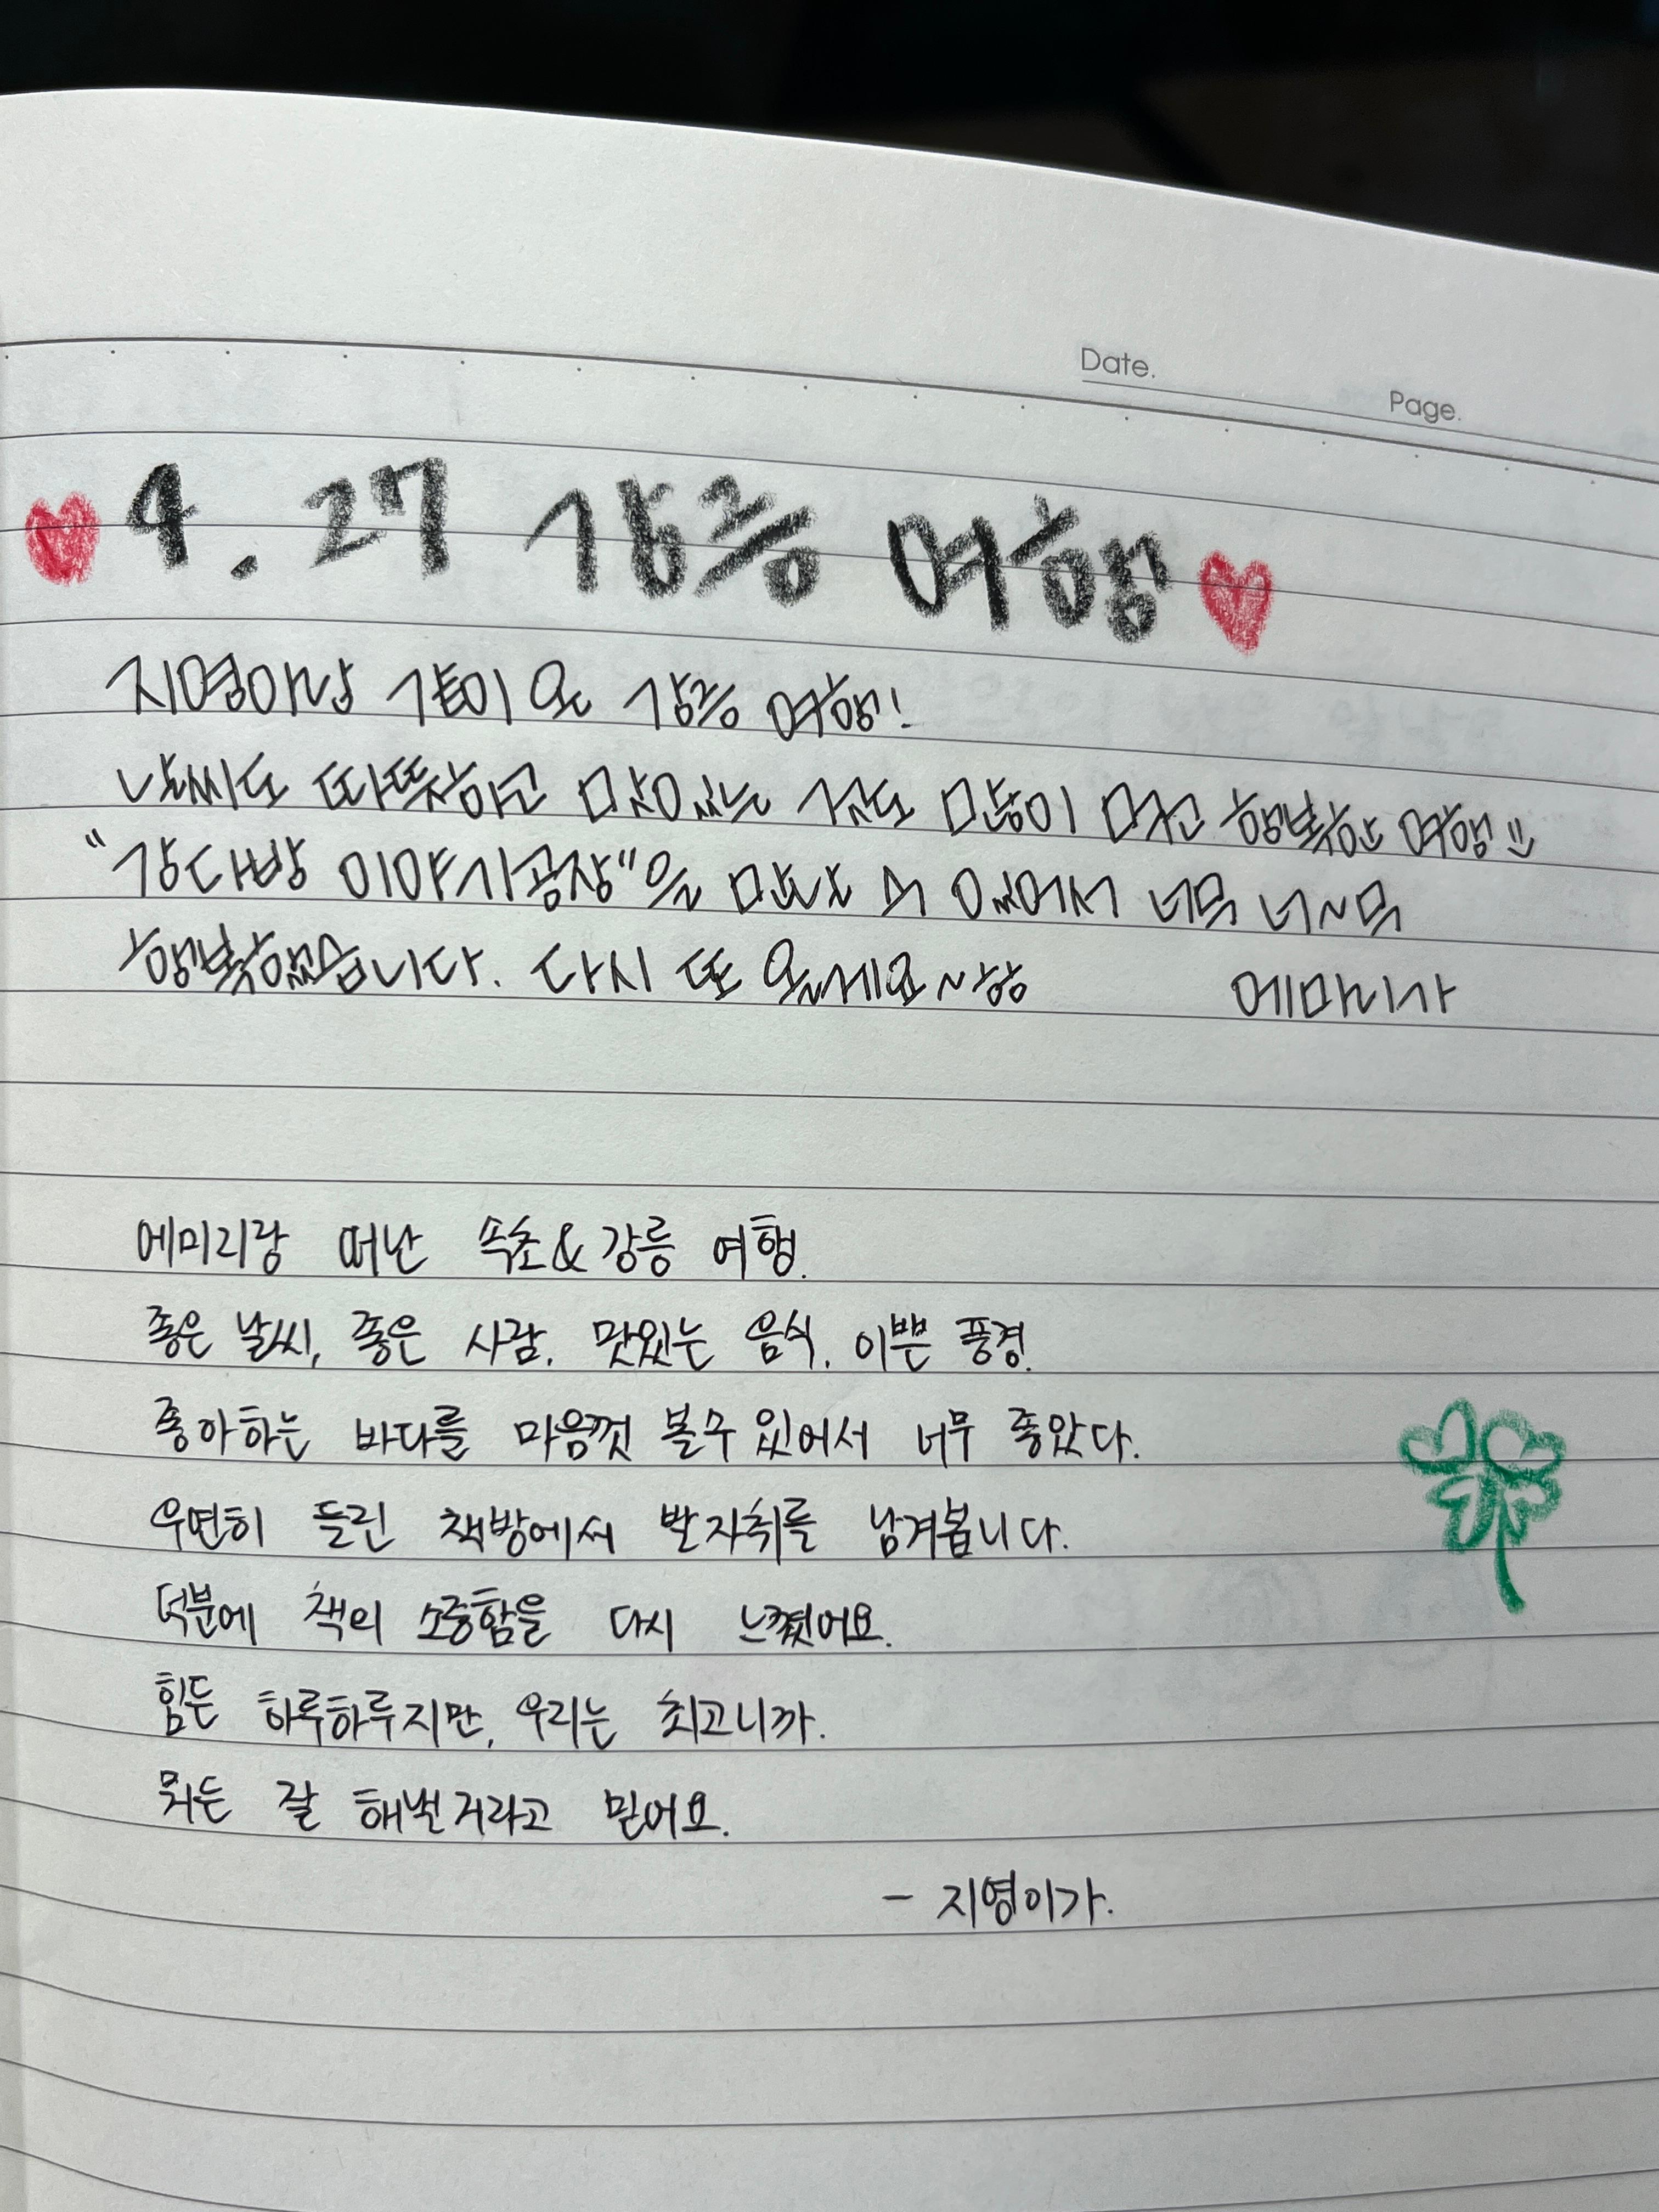 Date.
Page.
4. 27 강릉 여행
지영이랑 같이 온 강릉 여행!
날씨도 따뜻하고 맛있는 것도 많이 먹고 행복한 여행
"강다방 이야기공장"을 만날 수 있어서 너무 너~무
행복했습니다. 다시 또 올게요~ㅎㅎ 에마리가
에미리랑 떠난 속초&강릉 여행.
좋은 날씨, 좋은 사람, 맛있는 음식, 이쁜 풍경.
좋아하는 바다를 마음껏 볼수 있어서 너무 좋았다.
우연히 들린 책방에서 발자취를 남겨봅니다.
덕분에 책의 소중함을 다시 느꼈어요.
힘든 하루하루지만, 우리는 최고니까.
뭐든 잘 해낼거라고 믿어요.
- 지영이가.